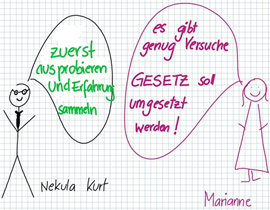 zuerst
ausprobieren
und Erfahrung
sammeln
es gibt
genug Versuche
GESETZ soll
umgesetzt
werden!
Nekula Kurt
Marianne